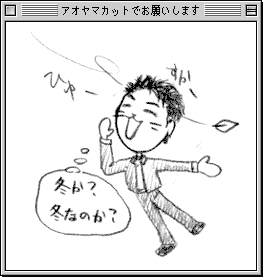 アオヤマカットでお願いします
ひゅー
すかっ
冬か?
冬なのか?